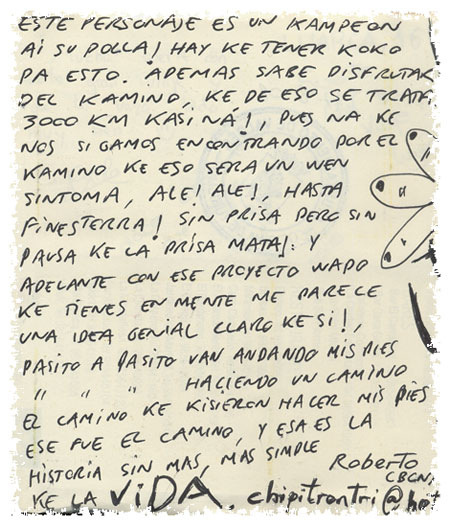 ESTE PERSONAJE ES UN KAMPEON
AI SU POLLA! HAY KE TENER KOKO
PA ESTO. ADEMAS SABE DISFRUTAR
DEL KAMINO, KE DE ESO SE TRATA,
3000 KM KASI NÁ!, PUES NA KE
NOS SIGAMOS ENCONTRANDO POR EL
KAMINO KE ESO SERA UN WEN
SINTOMA, ALE! ALE!, HASTA
FINESTERRA! SIN PRISA PERO SIN
PAUSA KE LA PRISA MATA!. Y
ADELANTE CON ESE PROYECTO WAPO
KE TIENES EN MENTE ME PARECE
UNA IDEA GENIAL CLARO KE SI!,
PASITO A PASITO VAN ANDANDO MIS PIES
" " " HACIENDO UN CAMINO
EL CAMINO KE KISIERON HACER MIS PIES
ESE FUE EL CAMINO, Y ESA ES LA
HISTORIA SIN MAS, MAS SIMPLE
KE LA VIDA. Roberto
CBCN,
chipitrontri@hot